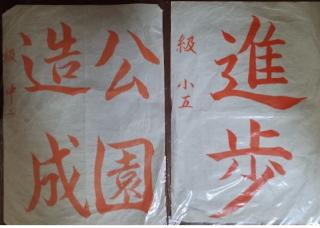 進歩
級 小五
公園
造成
級 中二